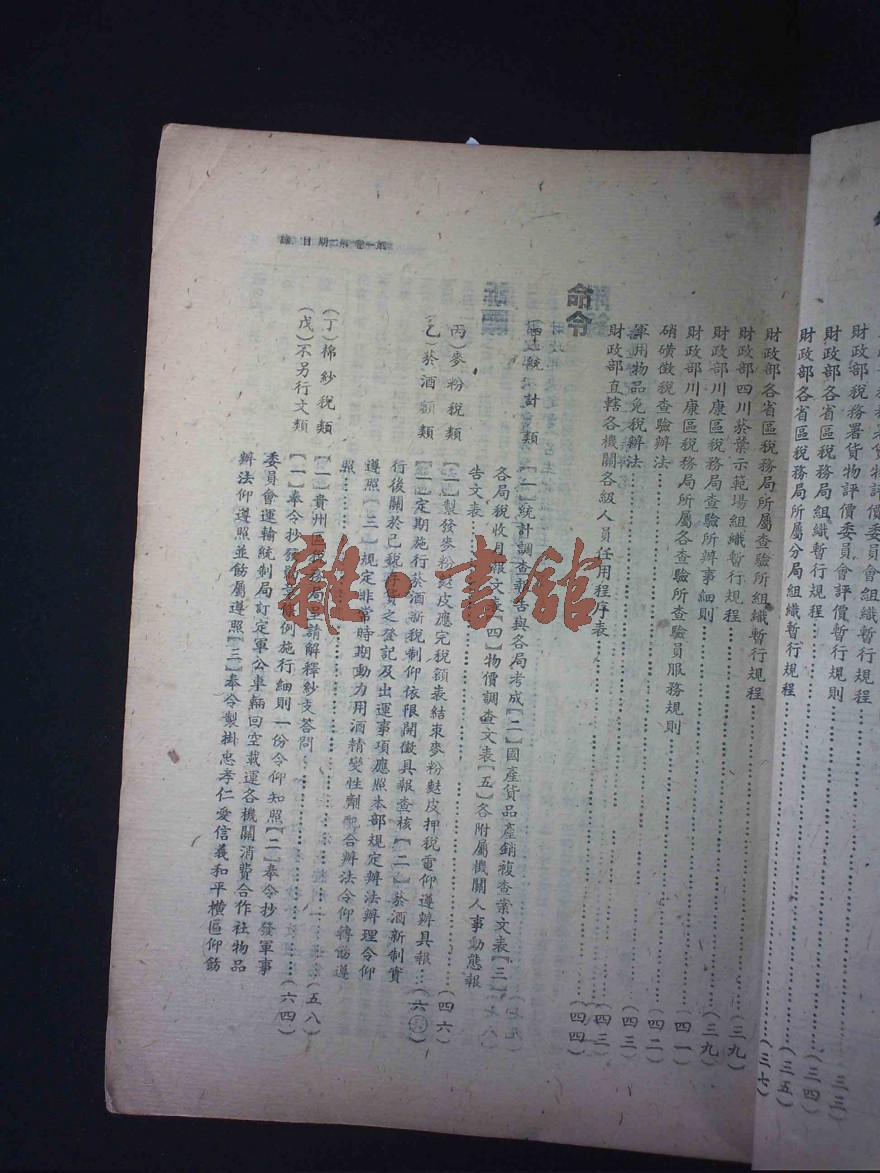 貨物評價委員會組織暫行規程
財政部稅務署貨物評價委員會評價暫行規則……(三三)
財政部各省區稅務局組織暫行規程……(三四)
財政部各省區稅務局所屬分局組織暫行規程……(三五)
財政部各省區稅務局所屬查驗所組織暫行規程……(三六)
財政部四川菸葉示範場組織暫行規程……(三九)
財政部川康區稅務局查驗所辦事細則……(三九)
財政部川康區稅務局所屬各查驗所查驗員服務規則……(四一)
硝磺徵稅查驗辦法……(四二)
軍用物品免稅辦法……(四三)
財政部直轄各機關各級人員任用程序表……(四三)
命令
(四四)
統計類
【一】統計調查報告與各局考成【二】國產貨品產銷複查案文表【三】
各局稅收月報文表【四】物價調查文表【五】各附屬機關人事動態報
告文表……
丙)麥粉稅類
製發麥粉麩皮應完稅額表結束麥粉麩皮押稅電仰遵辦具報……(四六)
乙)菸酒類
【一】定期施行菸酒新稅制仰依限開徵具報查核【二】菸酒新制實
行後關於已稅存貨之登記及出運事項應照本部規定辦法辦理令仰
遵照【三】規定非常時期動力用酒精變性劑配合辦法令仰轉飭遵
照……
(丁)棉紗稅類
【一】貴州區稅務局呈請解釋紗支答問……(五八)
(戊)不另行文類
【一】奉令抄發條例施行細則一份令仰知照【二】奉令抄發軍事……(六四)
委員會運輸統制局訂定軍公車輛回空載運各機關消費合作社物品
辦法仰遵照並飭屬遵照【三】奉令製掛忠孝仁愛信義和平橫區仰飭
第一卷第二期目錄
雜書館